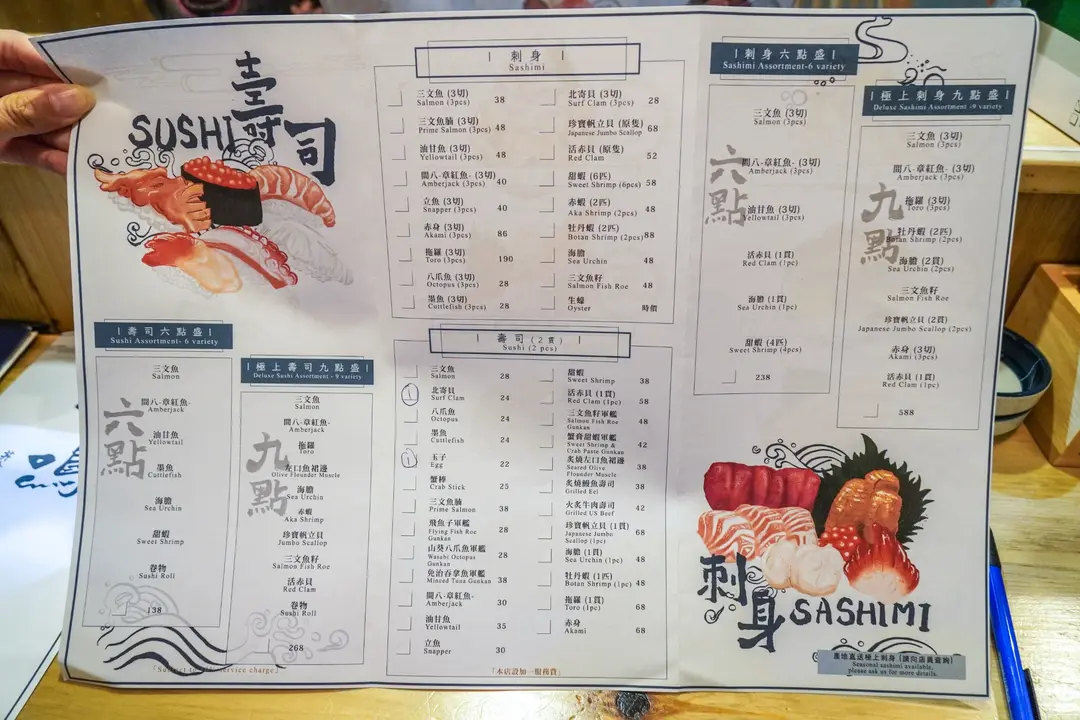 壽司
SUSHI
| 壽司六點盛 |
Sushi Assortment- 6 variety
六點
三文魚
Salmon
間八-章紅魚-
Amberjack
油甘魚
Yellowtail
墨魚
Cuttlefish
海膽
Sea Urchin
甜蝦
Sweet Shrimp
卷物
Sushi Roll
138
| 極上壽司九點盛 |
Deluxe Sushi Assortment - 9 variety
九點
三文魚
Salmon
間八-章紅魚-
Amberjack
拖羅
Toro
左口魚裙邊
Olive Flounder Muscle
海膽
Sea Urchin
赤蝦
Aka Shrimp
珍寶帆立貝
Jumbo Scallop
三文魚籽
Salmon Fish Roe
活赤貝
Red Clam
卷物
Sushi Roll
268
| 刺身 |
Sashimi
三文魚 (3切)
Salmon (3pcs) 38
三文魚腩 (3切)
Prime Salmon (3pcs) 48
油甘魚 (3切)
Yellowtail (3pcs) 48
間八-章紅魚- (3切)
Amberjack (3pcs) 40
立魚 (3切)
Snapper (3pcs) 40
赤身 (3切)
Akami (3pcs) 86
拖羅 (3切)
Toro (3pcs) 190
八爪魚 (3切)
Octopus (3pcs) 28
墨魚 (3切)
Cuttlefish (3pcs) 28
北寄貝 (3切)
Surf Clam (3pcs) 28
珍寶帆立貝 (原隻)
Japanese Jumbo Scallop 68
活赤貝 (原隻)
Red Clam 52
甜蝦 (6匹)
Sweet Shrimp (6pcs) 58
赤蝦 (2匹)
Aka Shrimp (2pcs) 48
牡丹蝦 (2匹)
Botan Shrimp (2pcs) 88
海膽
Sea Urchin 48
三文魚籽
Salmon Fish Roe 48
生蠔
Oyster 時價
| 壽司 (2貫) |
Sushi (2 pcs)
三文魚
Salmon 28
北寄貝
Surf Clam 24
八爪魚
Octopus 24
墨魚
Cuttlefish 24
玉子
Egg 22
蟹棒
Crab Stick 25
三文魚腩
Prime Salmon 38
飛魚子軍艦
Flying Fish Roe
Gunkan 28
山葵八爪魚軍艦
Wasabi Octopus
Gunkan 28
免治吞拿魚軍艦
Minced Tuna Gunkan 38
間八-章紅魚-
Amberjack 30
油甘魚
Yellowtail 35
立魚
Snapper 30
甜蝦
Sweet Shrimp 38
活赤貝 (1貫)
Red Clam (1pc) 58
三文魚籽軍艦
Salmon Fish Roe
Gunkan 48
蟹膏甜蝦軍艦
Sweet Shrimp &
Crab Paste Gunkan 42
炙燒左口魚裙邊
Seared Olive
Flounder Muscle 38
炙燒鰻魚壽司
Grilled Eel 38
火炙牛肉壽司
Grilled US Beef 42
珍寶帆立貝 (1貫)
Japanese Jumbo
Scallop (1pc) 68
海膽 (1貫)
Sea Urchin (1pc) 48
牡丹蝦 (1匹)
Botan Shrimp (1pc) 48
拖羅 (1貫)
Toro (1pc) 68
赤身
Akami 68
| 刺身六點盛 |
Sashimi Assortment-6 variety
六點
三文魚 (3切)
Salmon (3pcs)
間八-章紅魚- (3切)
Amberjack (3pcs)
油甘魚 (3切)
Yellowtail (3pcs)
活赤貝 (1貫)
Red Clam (1pc)
海膽 (1貫)
Sea Urchin (1pc)
甜蝦 (4匹)
Sweet Shrimp (4pcs)
238
| 極上刺身九點盛 |
Deluxe Sashimi Assortment -9 variety
九點
三文魚 (3切)
Salmon (3pcs)
間八-章紅魚- (3切)
Amberjack (3pcs)
拖羅 (3切)
Toro (3pcs)
牡丹蝦 (2匹)
Botan Shrimp (2pcs)
海膽 (2貫)
Sea Urchin (2pcs)
三文魚籽
Salmon Fish Roe
珍寶帆立貝 (2貫)
Japanese Jumbo Scallop (2pcs)
赤身 (3切)
Akami (3pcs)
活赤貝 (1貫)
Red Clam (1pc)
588
刺身
SASHIMI
產地直送極上刺身 (請向店員查詢)
Seasonal sashimi available,
please ask us for more details.
「Subject to 10% service charge」
「本店設加一服務費」